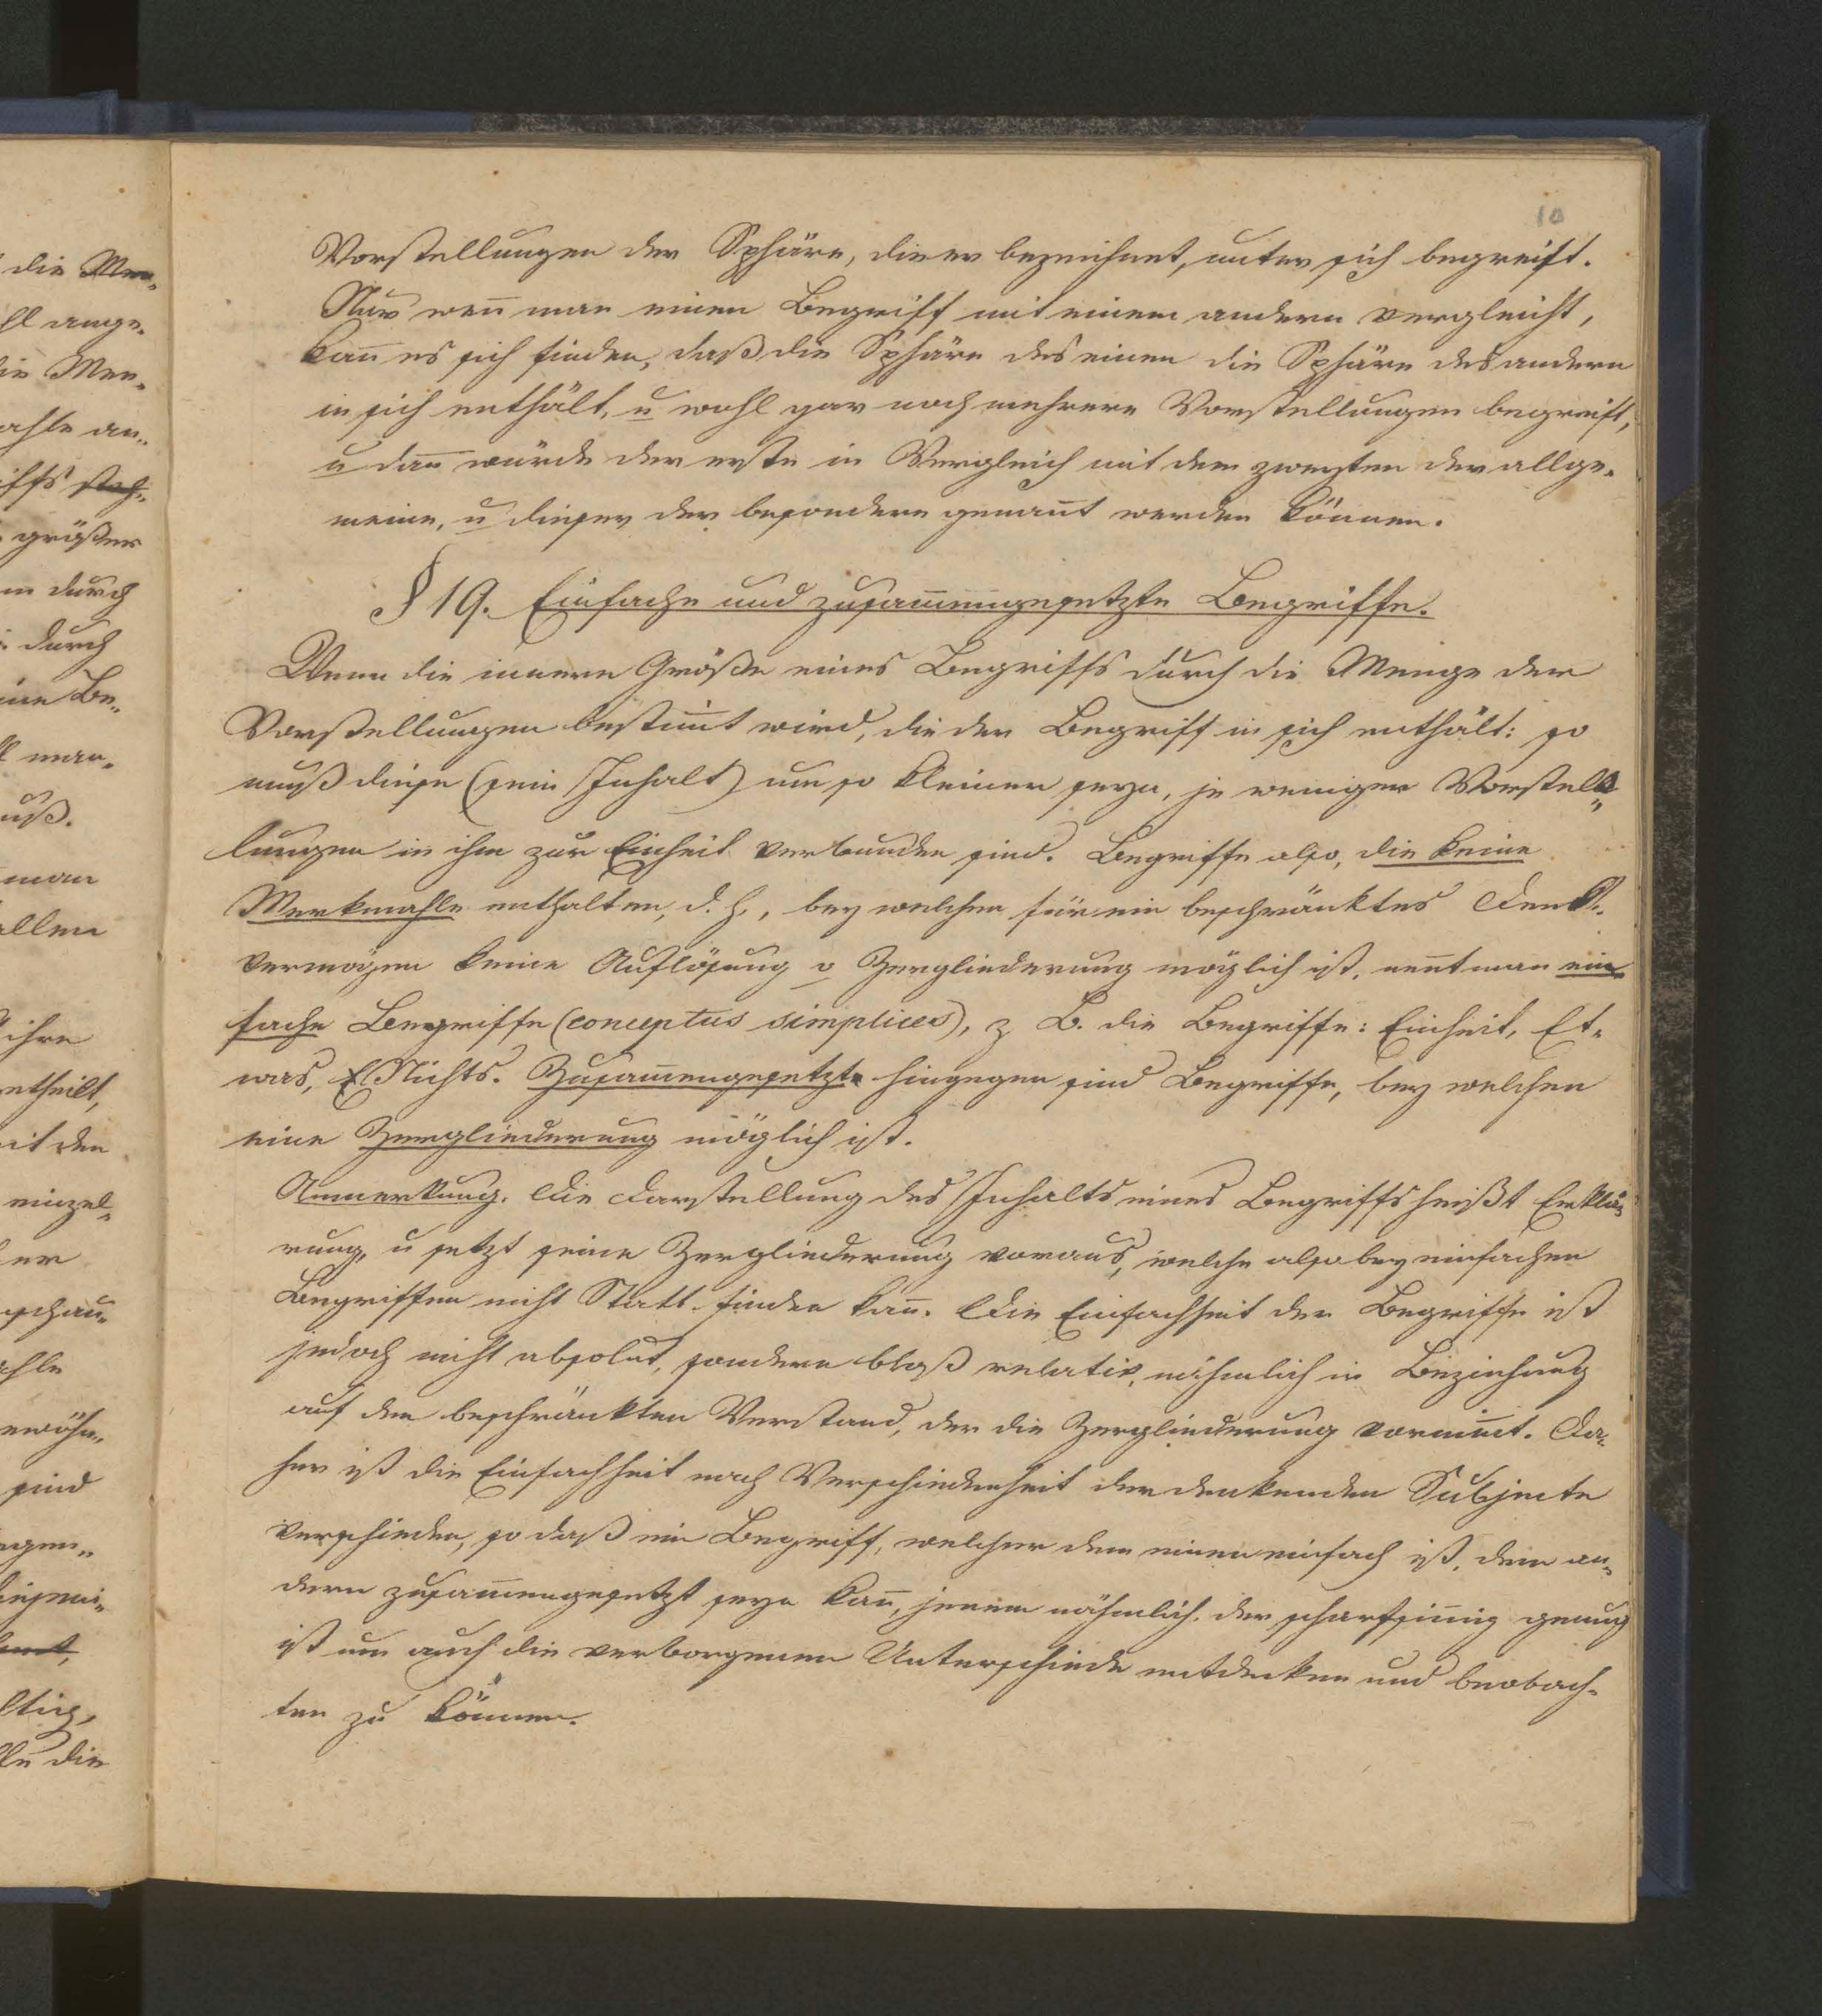 10
Vorstellungen der Sphäre, die er bezeichnet, unter sich begreift.
Nur weñ man einen Begriff mit einem andern vergleicht,
kañ es sich finden, daß die Sphäre des einen die Sphäre des andern
in sich enthält, u wohl gar noch mehrere Vorstellungen begreift,
u dañ würde der erste in Vergleich mit dem zweyten der allge-
meine, u dieser der besondere genañt werden können.
§ 19. Einfache und zusam̄engesetzte Begriffe.
Wenn die innere Größe eines Begriffs durch die Menge der
Vorstellungen bestim̄t wird, die der Begriff in sich enthält: so
muß diese (sein Inhalt) um so kleiner seyn, je weniger Vorstel-
lungen in ihm zur Einheit verbunden sind. Begriffe also, die keine
Merkmahle enthalten, d. h., bey welchen für ein beschränktes Denk-
vermögen keine Auflösung o Zergliederung möglich ist, neñt man ein-
fache Begriffe (conceptus simplices), z B. die Begriffe: Einheit, Et-
was, Nichts. Zusam̄engesetzte hingegen sind Begriffe, bey welchen
eine Zergliederung möglich ist.
Anmerkung. Die Darstellung des Inhalts eines Begriffs heißt Erklä-
rung, u setzt seine Zergliederung voraus, welche also bey einfachen
Begriffen nicht Statt finden kañ. Die Einfachheit der Begriffe ist
jedoch nicht absolut, sondern bloß relativ, nähmlich in Beziehung
auf den beschränkten Verstand, der die Zergliederung vornim̄t. Da-
her ist die Einfachheit nach Verschiedenheit der denkenden Subjecte
verschieden, so daß ein Begriff, welcher dem einen einfach ist, dem an-
dern zusam̄engesetzt seyn kañ, jenem nähmlich, der scharfsiñig genug
ist um auch die verborgenen Unterschiede entdecken und beobach-
ten zu können.